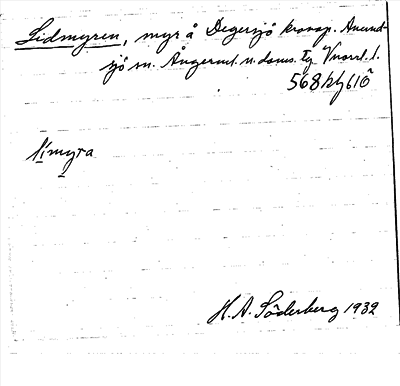 Lidmyren, myr å Degersjö kronop. Anund-
sjö sn. Ångerml. n. doms. Tg Vnorrl. l.
568 h/j 610
límyra
H. A. Söderberg 1932